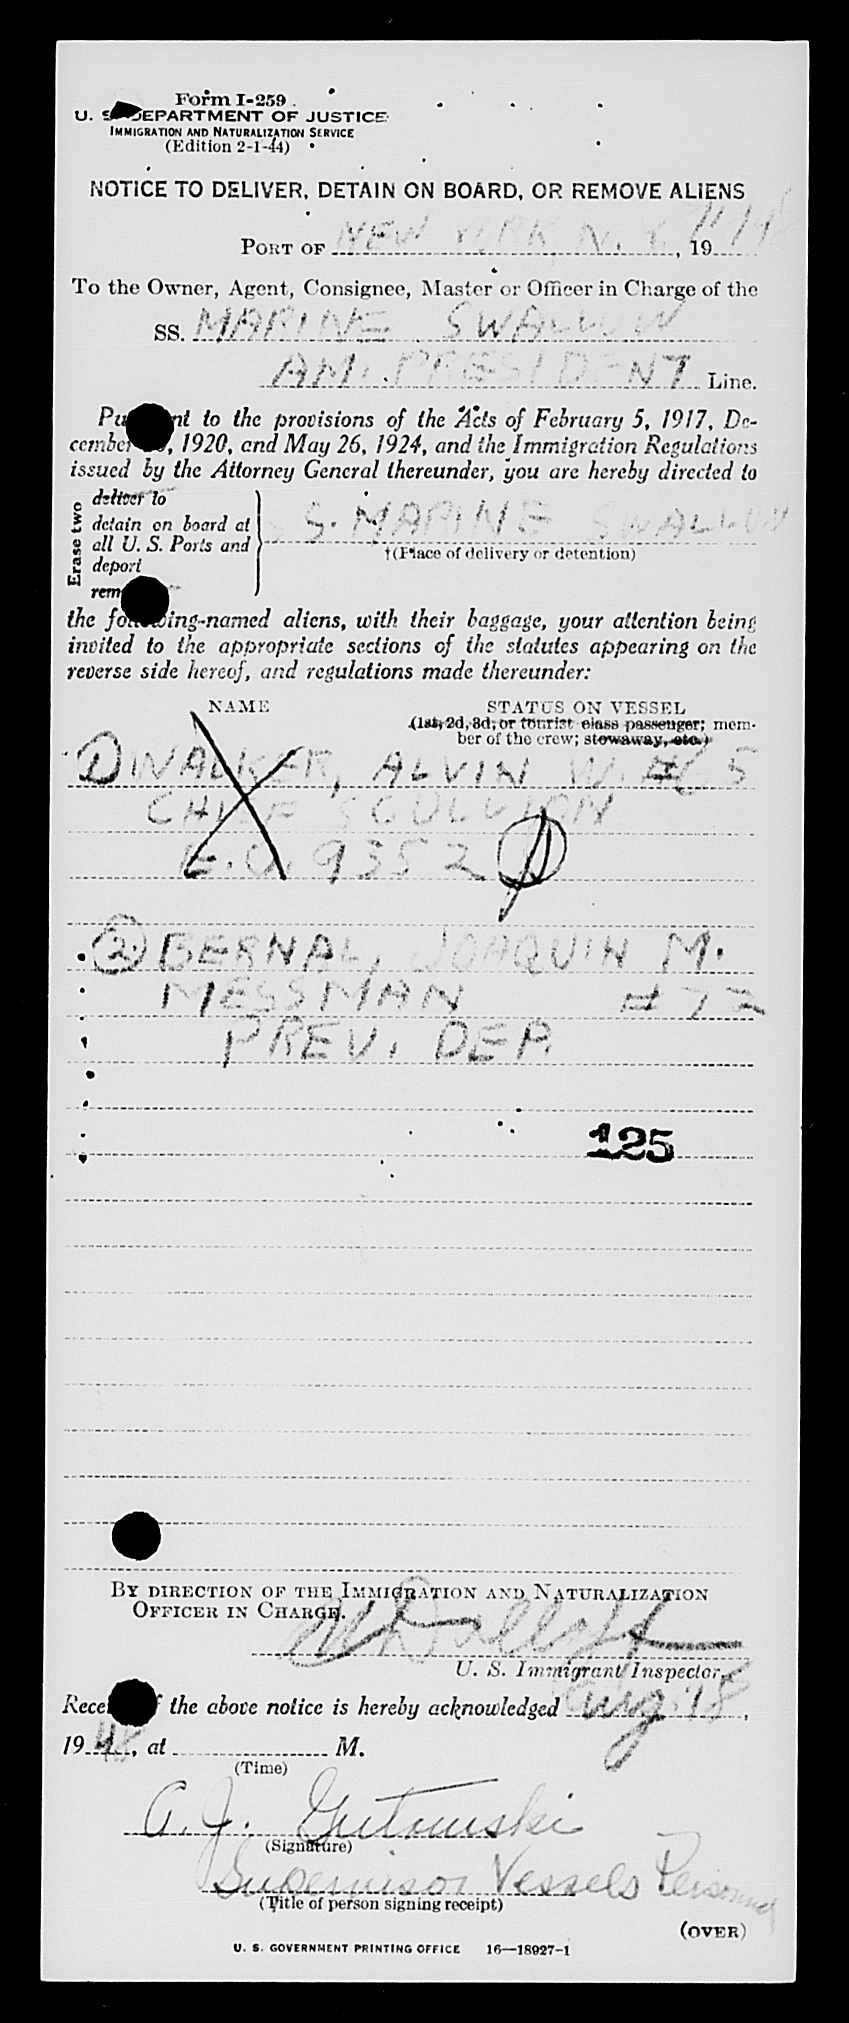 Form I-259
U. S. DEPARTMENT OF JUSTICE
IMMIGRATION AND NATURALIZATION SERVICE
(Edition 2-1-44)
NOTICE TO DELIVER, DETAIN ON BOARD, OR REMOVE ALIENS
PORT OF NEW YORK N. Y., 19
To the Owner, Agent, Consignee, Master or Officer in Charge of the
SS. MARINE SWALLOW
AM. PRESIDENT Line.
Pursuant to the provisions of the Acts of February 5, 1917, De-
cember , 1920, and May 26, 1924, and the Immigration Regulations
issued by the Attorney General thereunder, you are hereby directed to
Erase two
deliver to
detain on board at
all U. S. Ports and
deport
remove
S. S. MARINE SWALLOW
†(Place of delivery or detention)
the following-named aliens, with their baggage, your attention being
invited to the appropriate sections of the statutes appearing on the
reverse side hereof, and regulations made thereunder:
NAME STATUS ON VESSEL
(1st, 2d, 3d, or tourist class passenger; mem-
ber of the crew; stowaway, etc.)
1 WALKER, ALVIN W. #65
CHIEF SCULLION
E.O. 9352
2. BERNAL, JOAQUIN M.
MESSMAN #72
PREV. DEP.
125
BY DIRECTION OF THE IMMIGRATION AND NATURALIZATION
OFFICER IN CHARGE.
U. S. Immigrant Inspector.
Receipt of the above notice is hereby acknowledged Aug. 18,
1948, at M.
(Time)
A. J. Gutowski
(Signature)
Supervisor Vessels Personnel
(Title of person signing receipt)
(OVER)
U. S. GOVERNMENT PRINTING OFFICE 16—18927-1